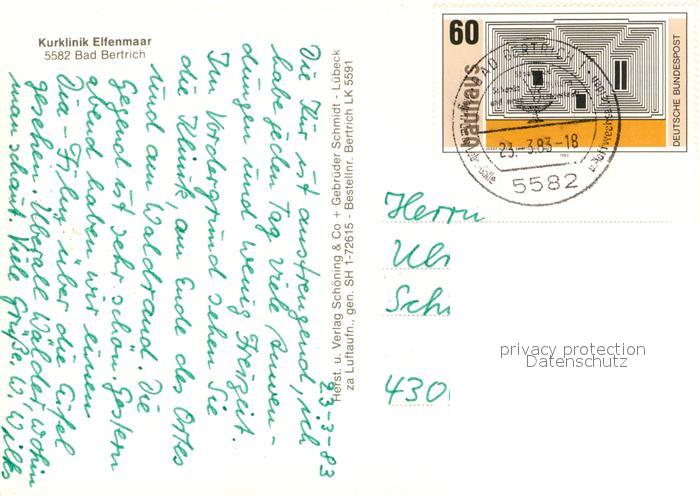 Kurklinik Elfenmaar
5582 Bad Bertrich
23-3-83
Die Kur ist anstrengend, ich
habe jeden Tag viele Anwen-
dungen und wenig Freizeit.
Im Vordergrund sehen Sie
die Klinik, am Ende des Ortes
und am Waldrand. Die
Gegend ist sehr schön. Gestern
abend haben wir einen
Dia-Film über die Eifel
gesehen. Überall Wälder, wohin
man schaut. Viele Grüße, W. Wilks
Herst. u. Verlag Schöning & Co + Gebrüder Schmidt - Lübeck
za Luftaufn., gen. SH 1-72615 - Bestellnr. Bertrich LK 5591
60
bauhaus
DEUTSCHE BUNDESPOST
BAD BERTRICH 1
23.-3.83-18
5582
Herrn
Ulr
Schi
430
privacy protection
Datenschutz